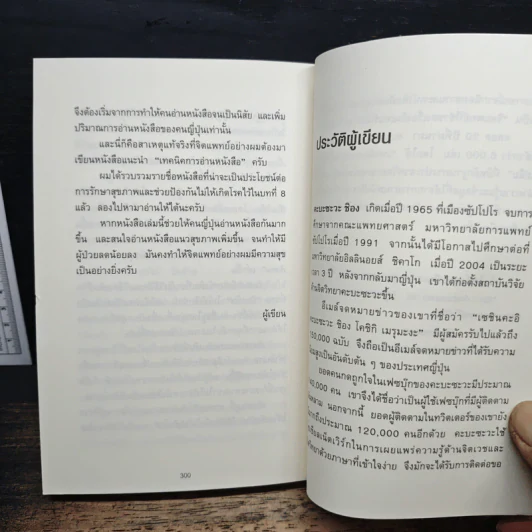 จึงต้องเริ่มจากการทำให้คนอ่านหนังสือจนเป็นนิสัย และเพิ่ม
ปริมาณการอ่านหนังสือของคนญี่ปุ่นเท่านั้น
และนี่ก็คือสาเหตุแท้จริงที่จิตแพทย์อย่างผมต้องมา
เขียนหนังสือแนะนำ “เทคนิคการอ่านหนังสือ” ครับ
ผมได้รวบรวมรายชื่อหนังสือที่น่าจะเป็นประโยชน์ต่อ
การรักษาสุขภาพและช่วยป้องกันไม่ให้เกิดโรคไว้ในบทที่ 8
แล้ว ลองไปหามาอ่านให้ได้นะครับ
หากหนังสือเล่มนี้ช่วยให้คนญี่ปุ่นอ่านหนังสือกันมาก
ขึ้น และสนใจอ่านหนังสือแนวสุขภาพเพิ่มขึ้น จนทำให้มี
ผู้ป่วยลดน้อยลง มันคงทำให้จิตแพทย์อย่างผมมีความสุข
เป็นอย่างยิ่งครับ
ผู้เขียน
300
ประวัติผู้เขียน
คะบะซะวะ ชิอง เกิดเมื่อปี 1965 ที่เมืองซัปโปโร จบการ
ศึกษาจากคณะแพทยศาสตร์ มหาวิทยาลัยการแพทย์
ซัปโปโรเมื่อปี 1991 จากนั้นได้มีโอกาสไปศึกษาต่อที่
มหาวิทยาลัยอิลลินอยส์ ชิคาโก เมื่อปี 2004 เป็นระยะ
เวลา 3 ปี หลังจากกลับมาญี่ปุ่น เขาได้ก่อตั้งสถาบันวิจัย
ด้านจิตวิทยาคะบะซะวะขึ้น
อีเมล์จดหมายข่าวของเขาที่ชื่อว่า “เซชินคะอิ
คะบะซะวะ ชิอง โคชิกิ เมรุมะงะ” มีผู้สมัครรับไปแล้วถึง
150,000 ฉบับ จึงถือเป็นอีเมล์จดหมายข่าวที่ได้รับความ
นิยมสูงเป็นอันดับต้น ๆ ของประเทศญี่ปุ่น
ยอดคนกดถูกใจในเฟซบุ๊กของคะบะซะวะมีประมาณ
,000 คน เขาจึงได้ชื่อว่าเป็นผู้ใช้เฟซบุ๊กที่มีผู้ติดตาม
นอกจากนี้ ยอดผู้ติดตามในทวิตเตอร์ของเขายัง
ถึงประมาณ 120,000 คนอีกด้วย คะบะซะวะใช้
เน็ตเวิร์กในการเผยแพร่ความรู้ด้านจิตเวชและ
ด้วยภาษาที่เข้าใจง่าย จึงมักจะได้รับการติดต่อขอ